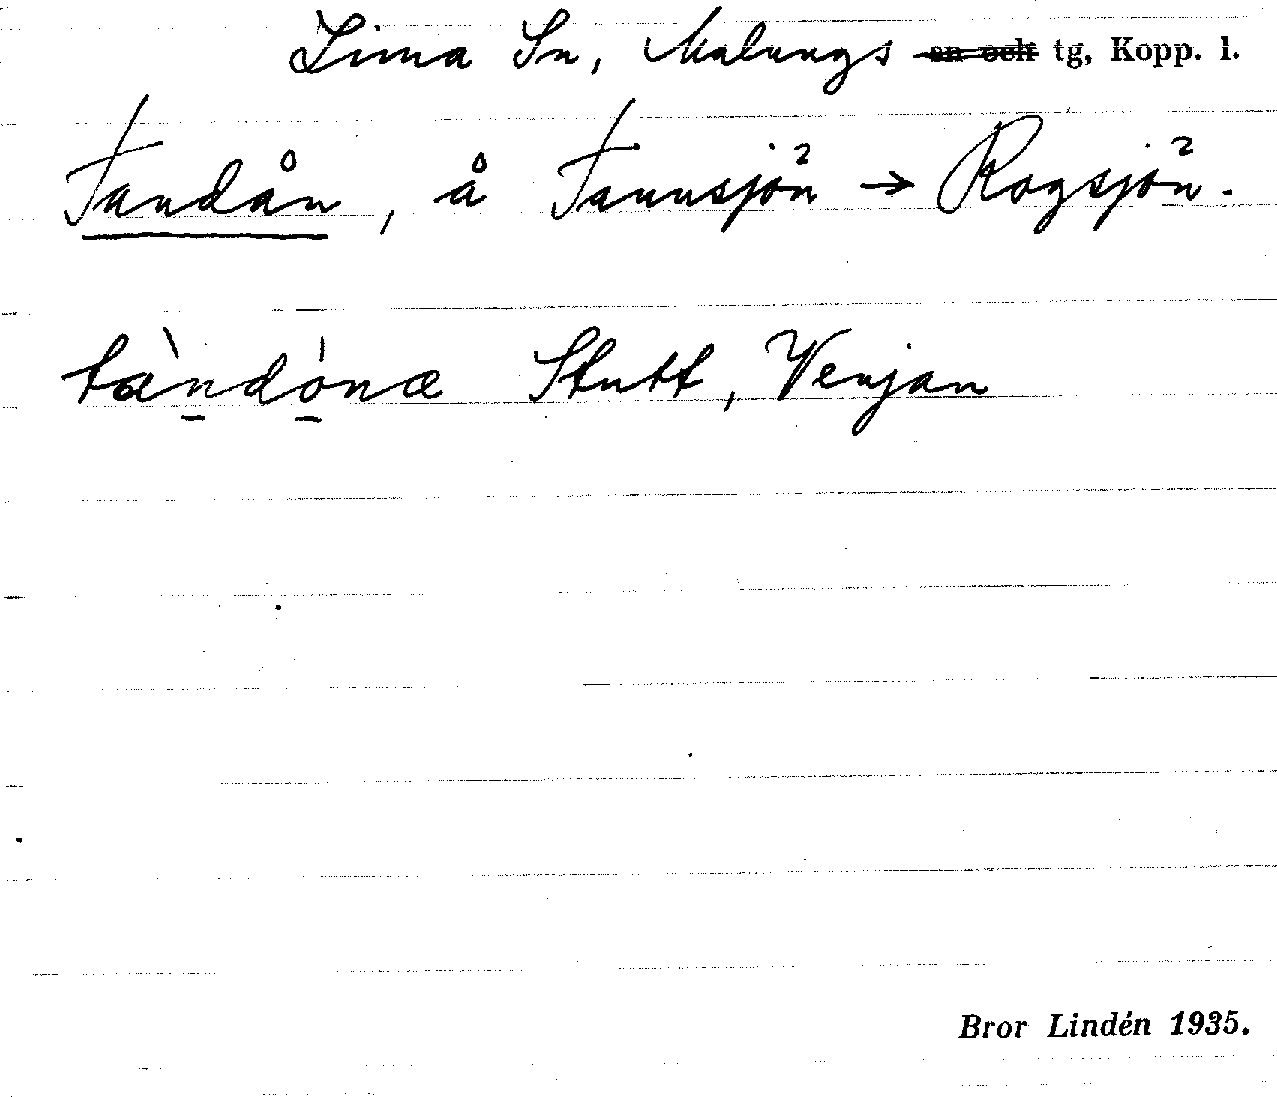 Lima Sn, Malungs ~~sn och~~ tg, Kopp. l.
Tandån, å Tannsjön → Rogsjön.
tàndónæ Stutt, Venjan
Bror Lindén 1935.